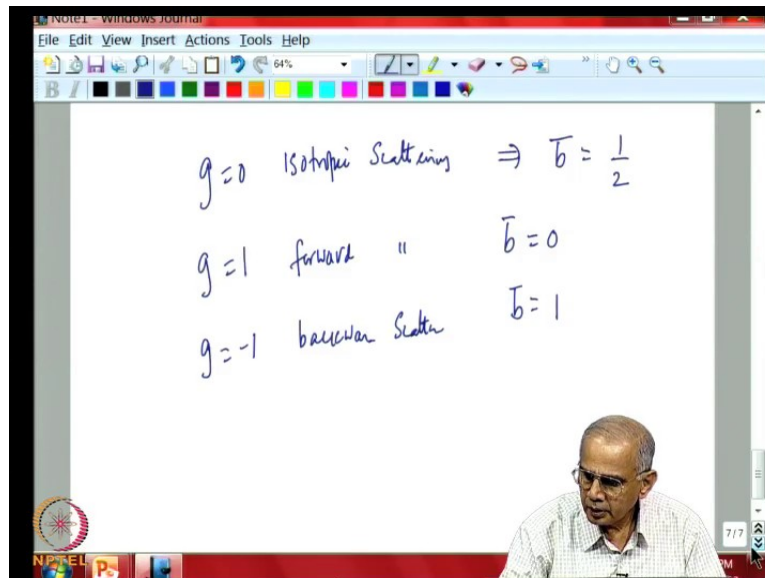 Note1 - Windows Journal
File Edit View Insert Actions Tools Help
64%
B I
g=0 Isotropic Scattering ⇒ b̄ = 1/2
g=1 forward " b̄ = 0
g=-1 Scatter b̄ = 1
7/7
NPTEL
PM